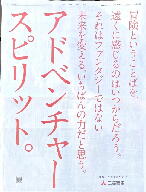 「冒険」ということばを、
遠くに感じるのはいつからだろう。
それはファンタジーではない。
未来を変える、いちばんの力だと思う。
アドベンチャー
スピリット。